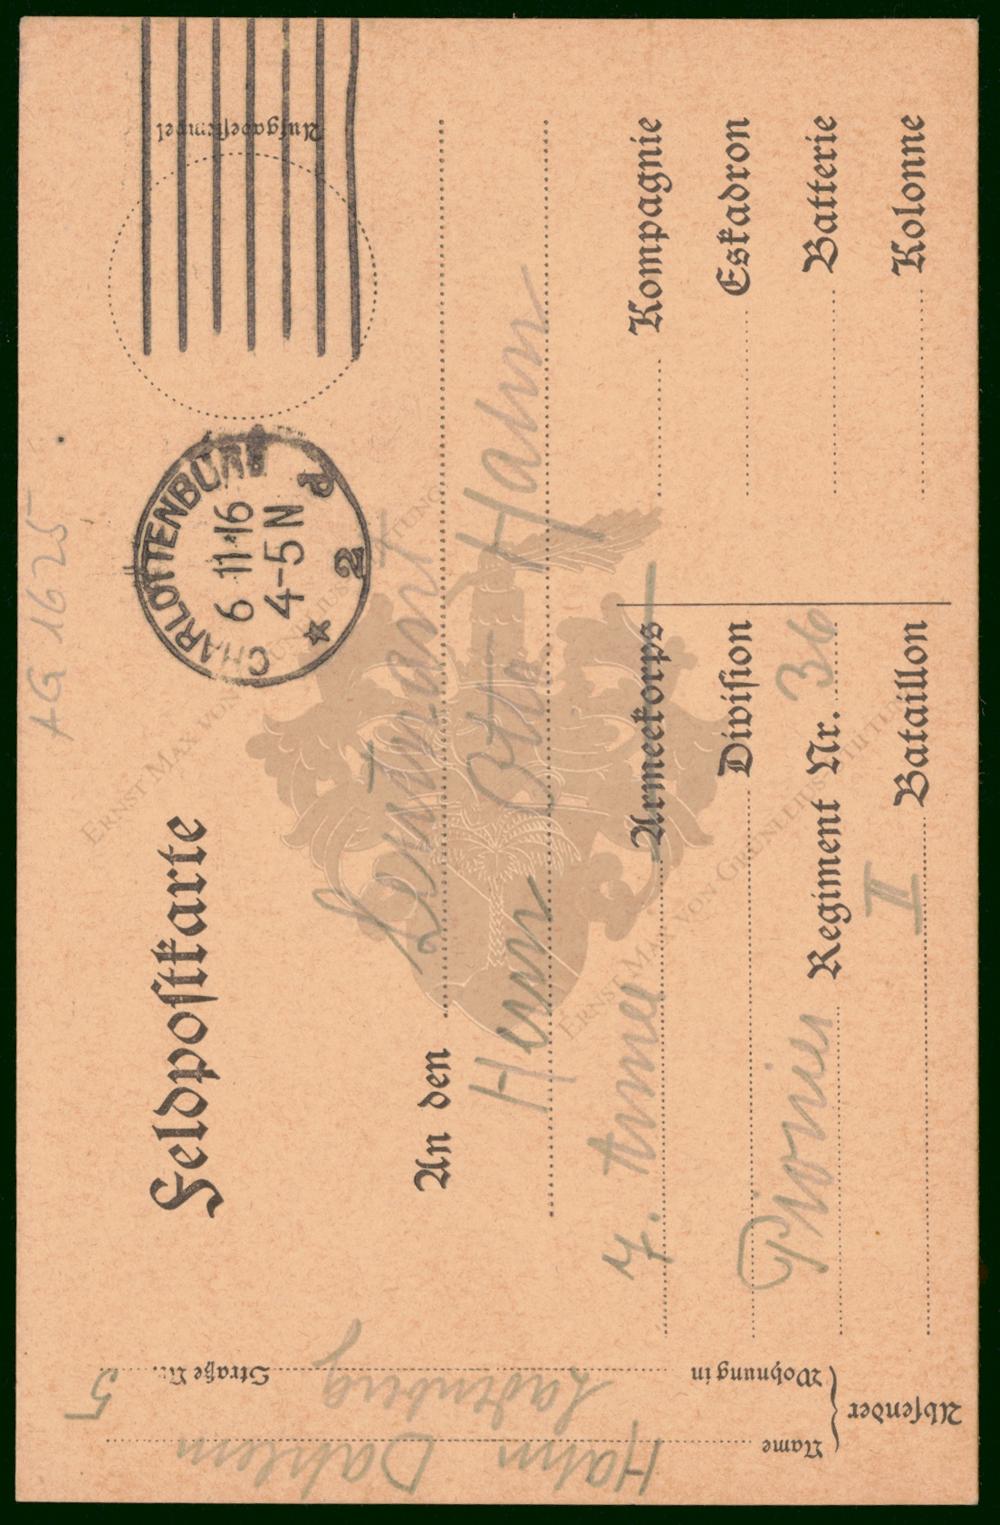 AG 1625
Feldpostkarte
CHARLOTTENBURG
6 11.16
4-5 N
* 2 d
Aufgabestempel
An den Leutnant
Herrn Otto Hahn
7. Armee Armeekorps
Division
Pionier Regiment Nr. 36
II Bataillon
Kompagnie
Eskadron
Batterie
Kolonne
Absender
Name Hahn Dahlem
Wohnung in Ladenberg
Straße Nr. 5
ERNST MAX VON GRUNELIUS-STIFTUNG
ERNST MAX VON GRUNELIUS-STIFTUNG